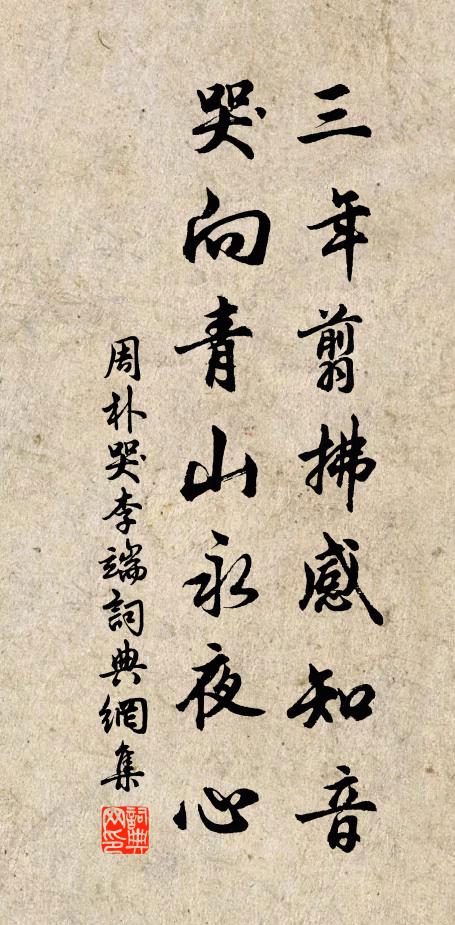 三年翦拂感知音
哭向青山永夜心
周朴哭李端詞典網集
詞典网印